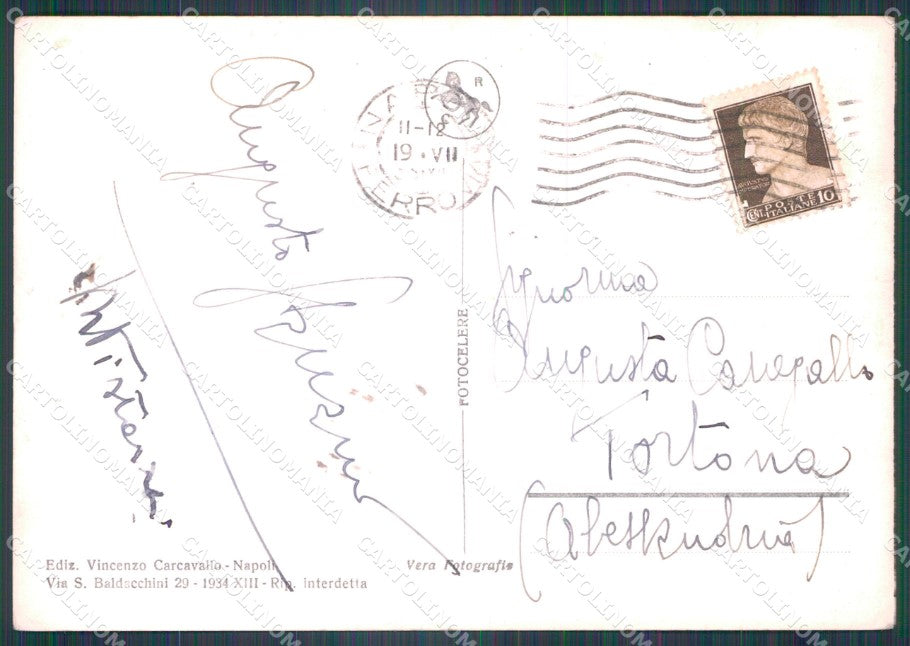 Augusto
R
NAPOLI
11-12
19·VII
FERROVIA
POSTE
ITALIANE
CENT. 10
Signorina
Augusta Cavagallo
Tortona
(Alessandria)
FOTOCELERE
Ediz. Vincenzo Carcavallo - Napoli
Via S. Baldacchini 29 - 1934 XIII - Rip. interdetta
Vera Fotografia
CARTOLINOMANIA